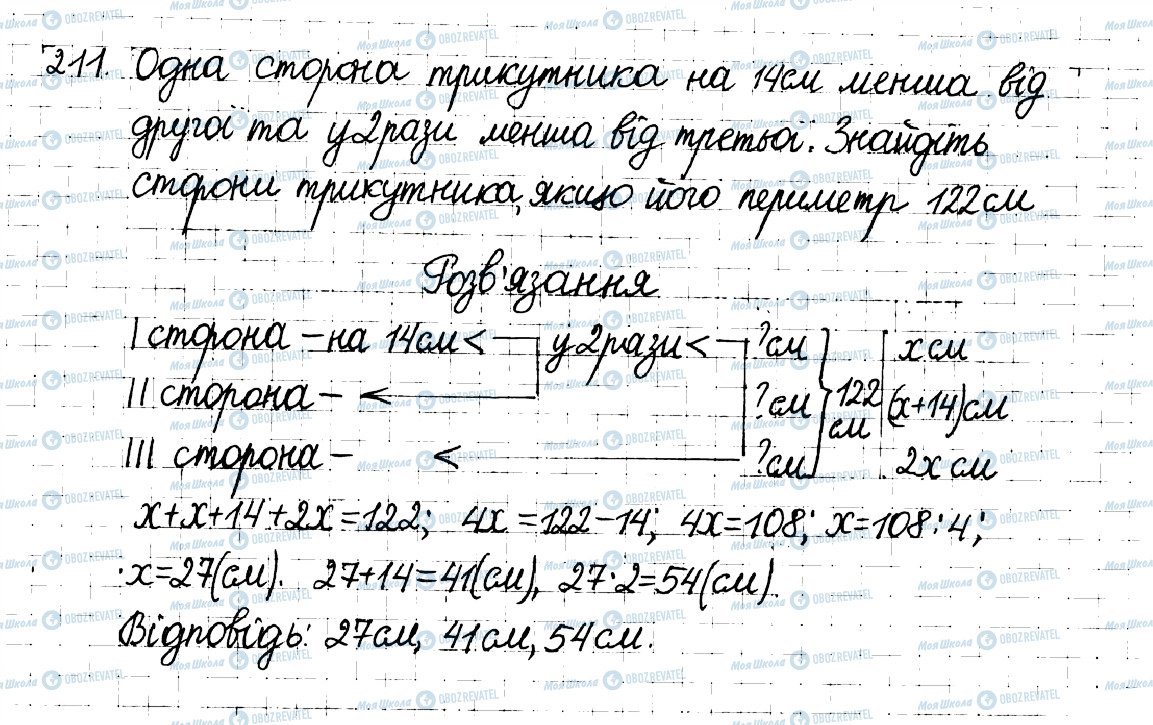 211. Одна сторона трикутника на 14см менша від
другої та у 2рази менша від третьої. Знайдіть
сторони трикутника, якщо його периметр 122см
Розв'язання
I сторона – на 14см < у 2рази < ?см х см
II сторона – < ?см 122 см (х+14)см
III сторона – < ?см 2х см
х+х+14+2х=122; 4х=122-14; 4х=108; х=108:4;
х=27(см). 27+14=41(см), 27·2=54(см).
Відповідь: 27см, 41см, 54см.